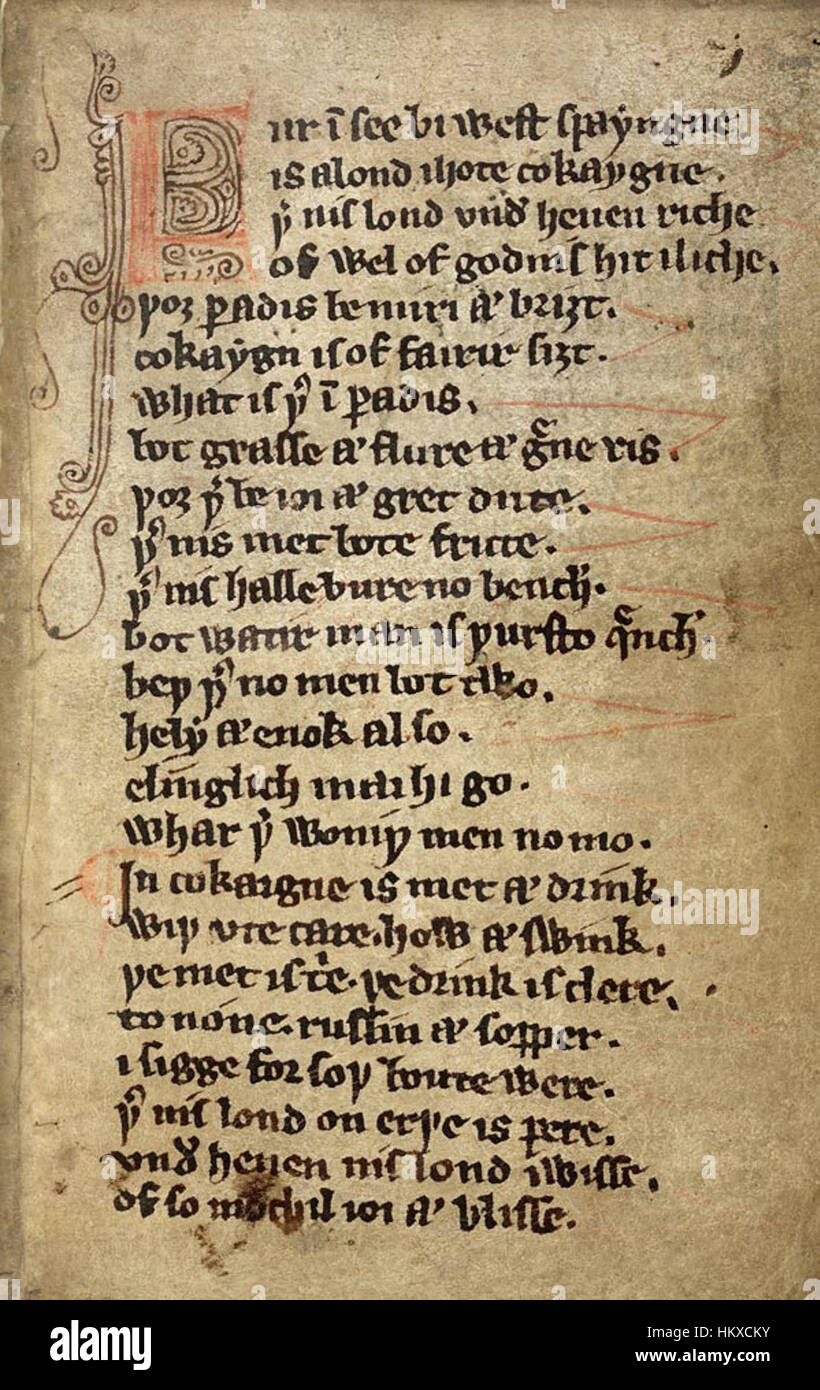 Fur ī see bi west spaẏngne.
is a lond ihote cokaẏgne.
þ͛ nis lond vnd͛ heuen riche
of wel of godnis hit iliche.
þoȝ paradis be miri ⁊ briȝt.
cokaẏgn is of fairir siȝt.
what is þ͛ ī paradis.
bot grasse ⁊ flure ⁊ g͛ne ris.
þoȝ þ͛ be ioi ⁊ gret dute.
þ͛ nis met bote frute.
þ͛ nis halle bure no bench͛.
bot watir man is þursto q͛nch͛.
beþ þ͛ no men bot two.
helẏ ⁊ enok also.
elīglich mai hi go.
whar þ͛ woniþ men no mo.
In cokaigne is met ⁊ drink.
wiþ vte care. how ⁊ swink.
þe met is t͛e. þe drink is clere.
to none. russin ⁊ sopper.
i sigge for soþ boute were.
þ͛ nis lond on erþe is pere.
vnd͛ heuen nis lond iwisse.
of so mochil ioi ⁊ blisse.
alamy
Image ID: HKXCKY
www.alamy.com